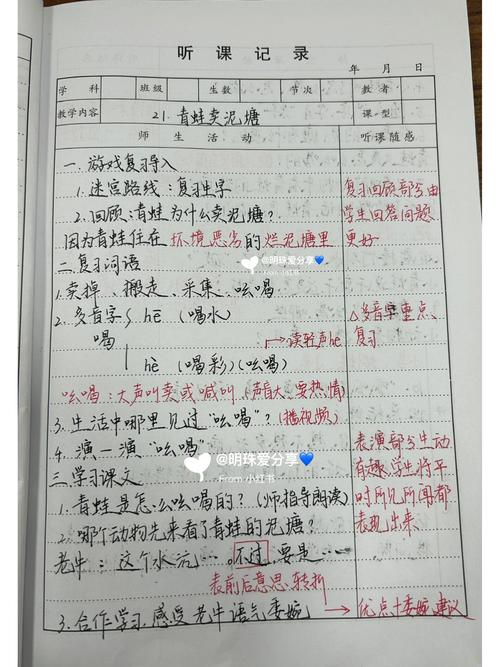 听课记录
年 月 日
学科 班级 生数 节次 教者
教学内容 21.青蛙卖泥塘 课型
师生活动 听课随感
一.游戏复习导入
1.迷宫路线:复习生字
2.回顾:青蛙为什么卖泥塘?
因为青蛙住在环境恶劣的烂泥塘里
复习回顾部分由
学生回答问题
更好
@明珠爱分享💙
From 小红书
二.复习词语
1.卖掉、搬走、采集、吆喝
2.多音字 hē (喝水)
喝
→读轻声he
hè (喝彩)(吆喝)
△多音字重点
复习
吆喝:大声叫卖或喊叫(声音大、要热情)
3.生活中哪里见过“吆喝”?(播视频)
4.演一演“吆喝”
@明珠爱分享💙
From 小红书
三.学习课文
1.青蛙是怎么吆喝的?(师指导朗读)
2.哪个动物先来看了青蛙的泥塘?
老牛:这个水坑…。不过,要是…
表前后意思转折
表演部分生动
有趣,学生将平
时所见所闻都
表现出来
3.合作学习,感受老牛语气委婉
→优点+委婉建议